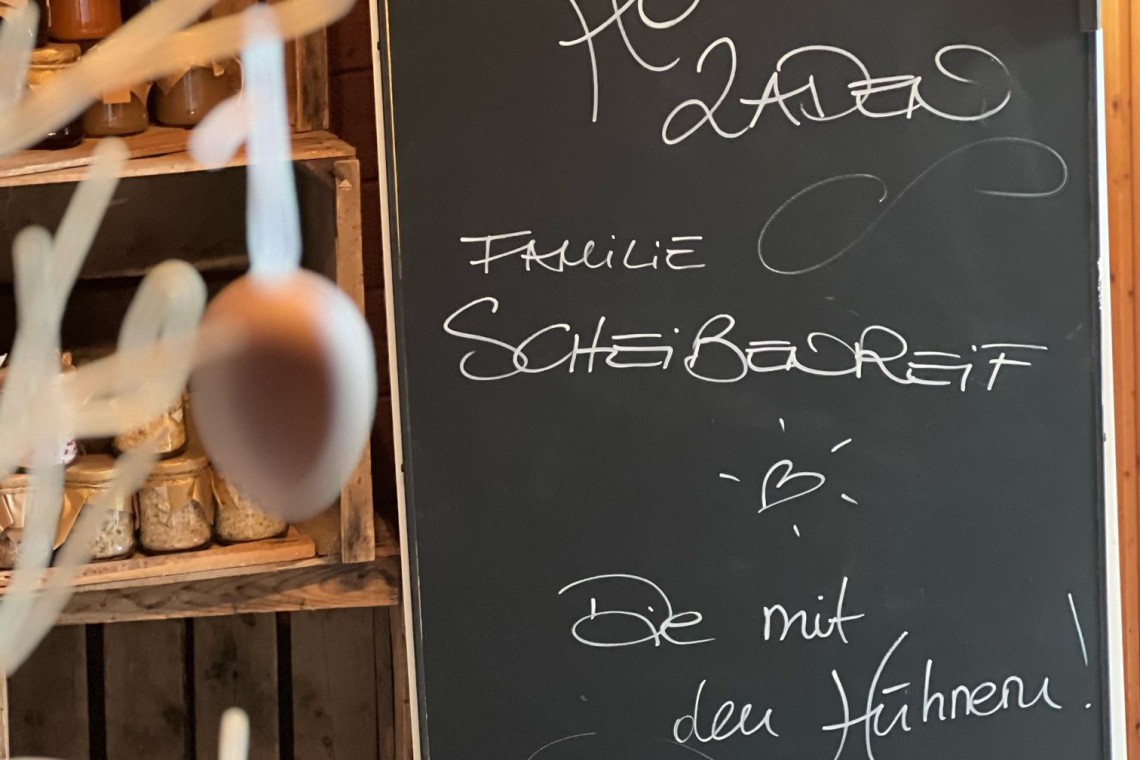 LADEN
FAMiLiE
SCHEiBENREiF
Die mit
den Hühnern!